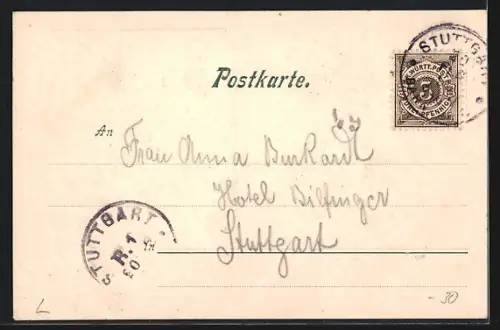 Postkarte.
STUTTGART
K. WÜRTT. POST
3
PFENNIG
An
Frau Anna Burkardt
Hotel Bilfinger
Stuttgart
in
STUTTGART
R. 1
-30